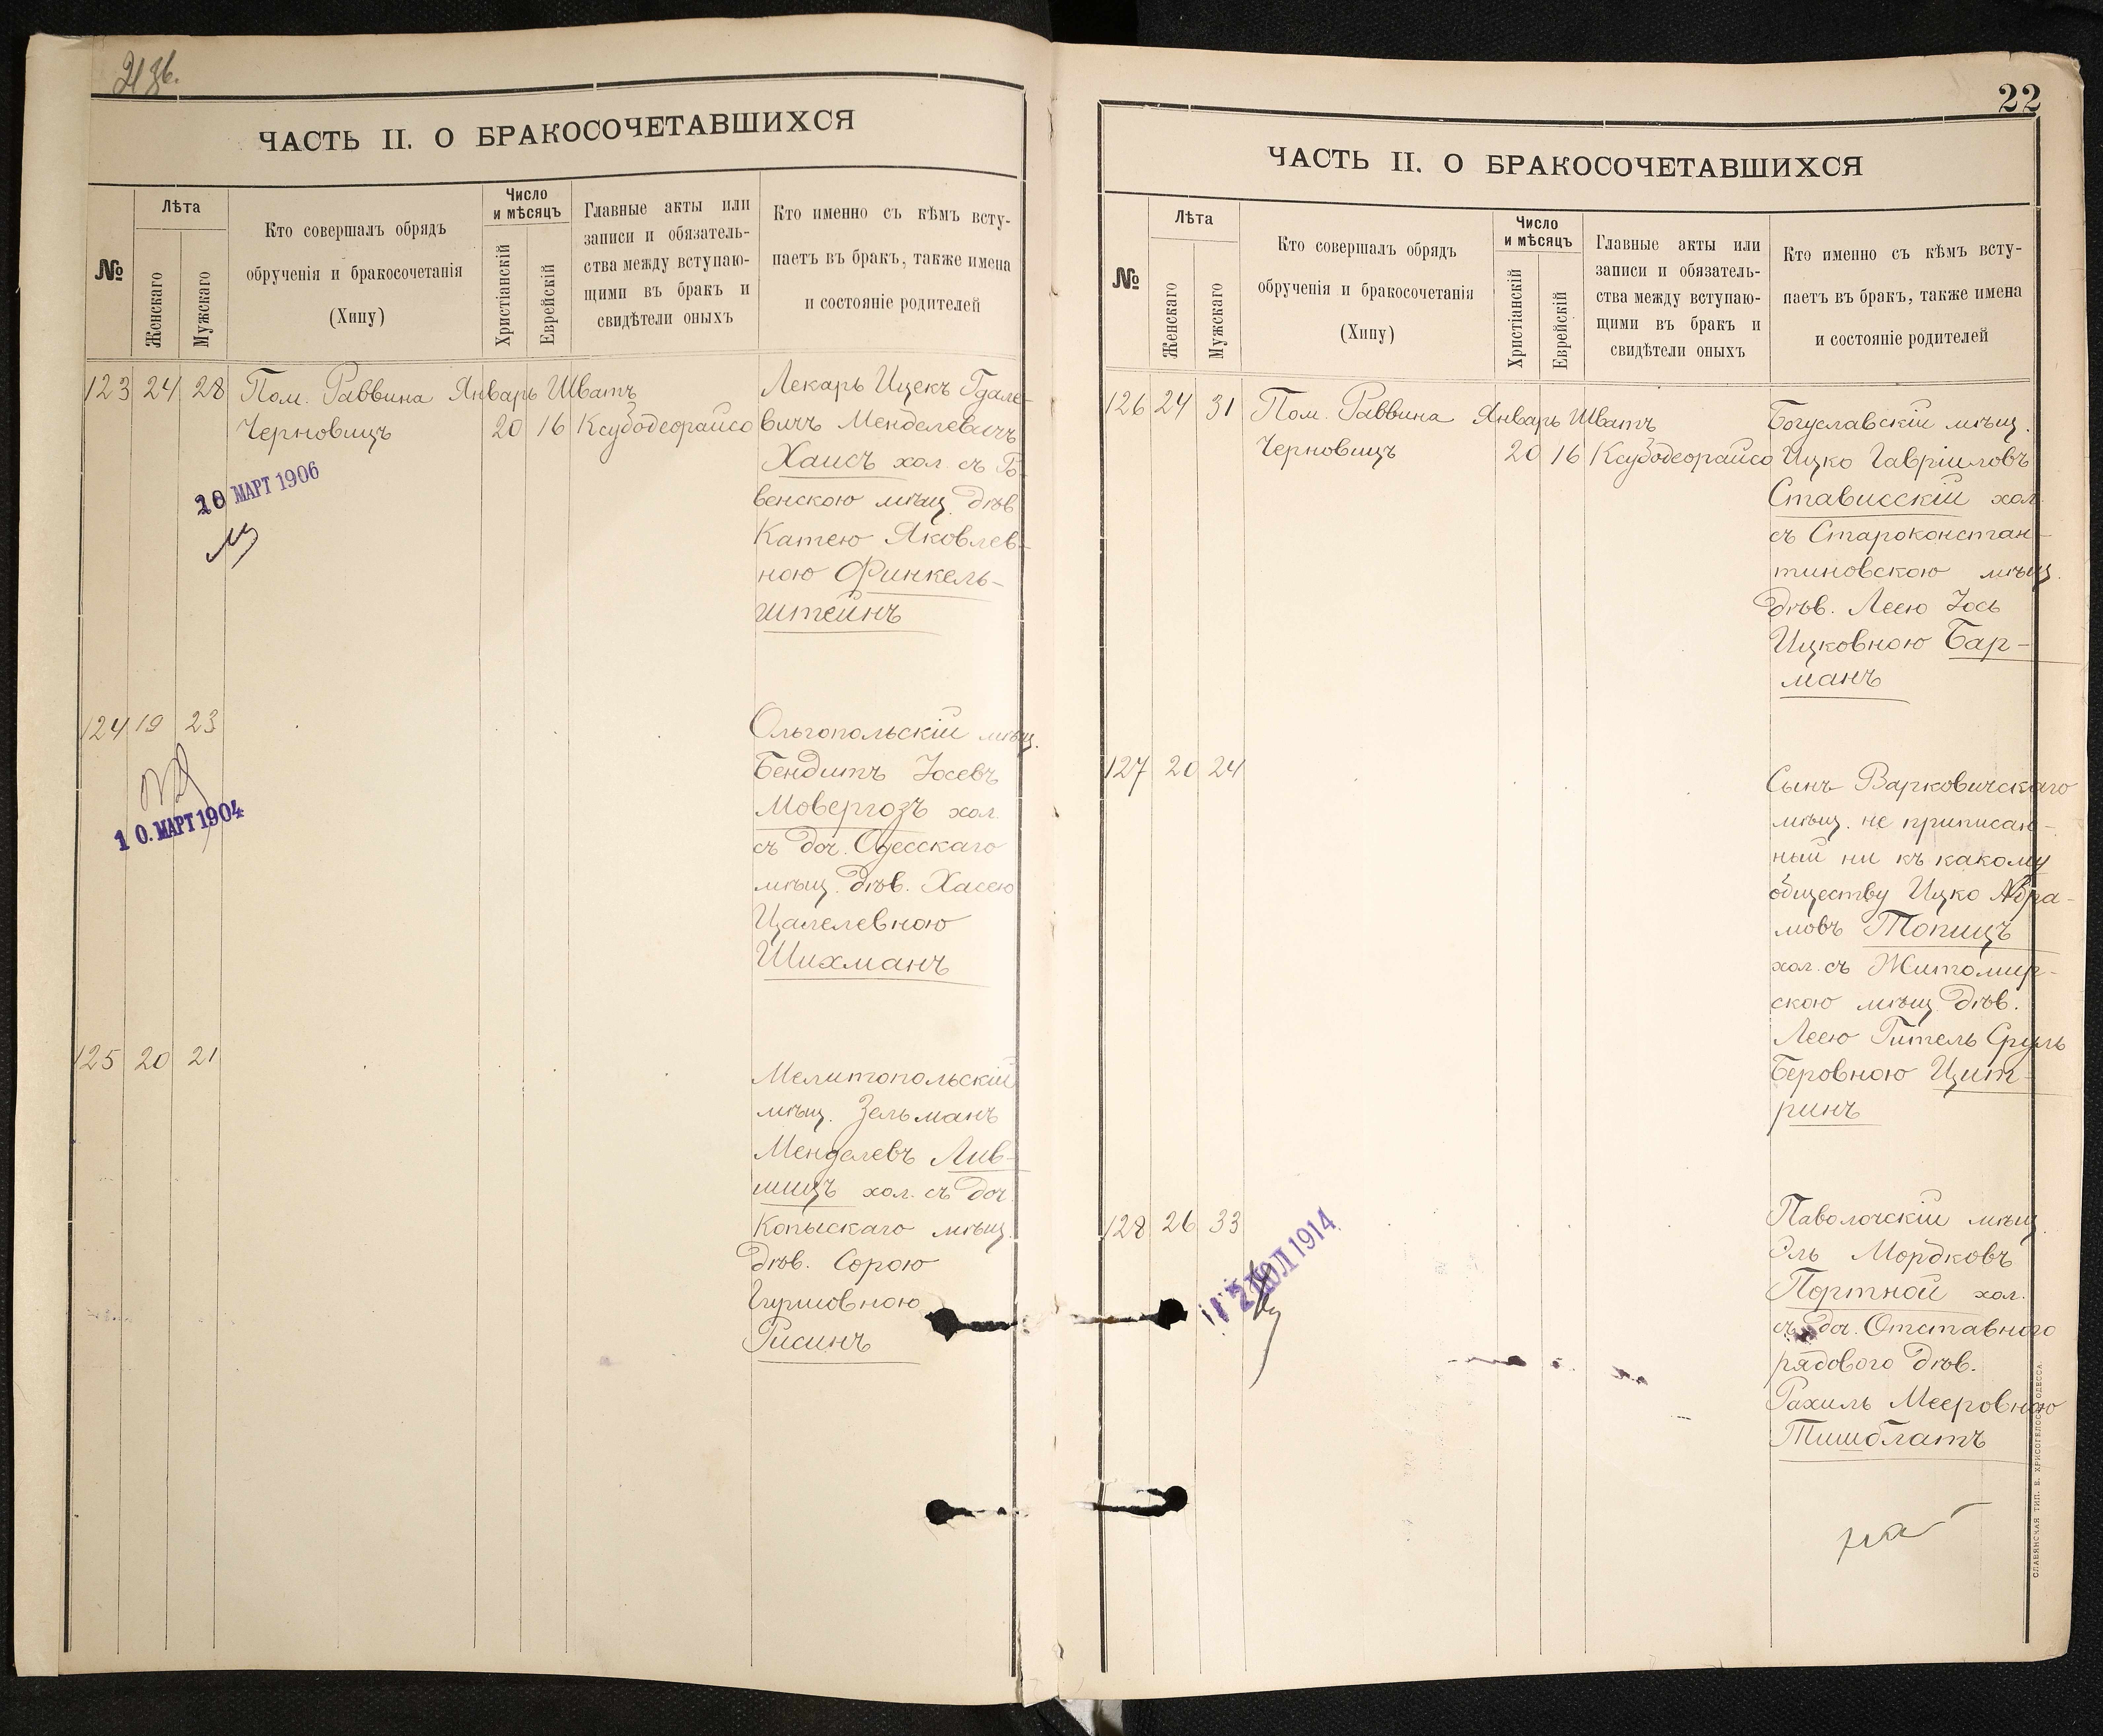 21 зв.
ЧАСТЬ II. О БРАКОСОЧЕТАВШИХСЯ
№
Лѣта
Женскаго
Мужскаго
Кто совершалъ обрядъ
обрученія и бракосочетанія
(Хипу)
Число
и мѣсяцъ
Христіанскій
Еврейскій
Главные акты или
записи и обязатель-
ства между вступаю-
щими въ бракъ и
свидѣтели оныхъ
Кто именно съ кѣмъ всту-
паетъ въ бракъ, также имена
и состояніе родителей
123 24 28 Пом. Раввина Январь Шватъ
Черновицъ 20 16 Ксубодеорайсо
Лекарь Ицекъ Гдале-
вичъ Менделевичъ
Хаисъ хол. съ Ро-
венскою мѣщ. дѣв.
Катею Яковлев-
ною Финкель-
штейнъ
МАРТ 1906
124 19 23
Ольгопольскій мѣщ.
Бендитъ Іосевъ
Мовергозъ хол.
съ доч. Одесскаго
мѣщ. дѣв. Хасею
Цалелевною
Шихманъ
10. МАРТ 1904
125 20 21
Мелитопольскій
мѣщ. Зельманъ
Менделевъ Лив-
шицъ хол. съ доч.
Копыскаго мѣщ.
дѣв. Сорою
Гиршовною
Рисинъ
22
ЧАСТЬ II. О БРАКОСОЧЕТАВШИХСЯ
№
Лѣта
Женскаго
Мужскаго
Кто совершалъ обрядъ
обрученія и бракосочетанія
(Хипу)
Число
и мѣсяцъ
Христіанскій
Еврейскій
Главные акты или
записи и обязатель-
ства между вступаю-
щими въ бракъ и
свидѣтели оныхъ
Кто именно съ кѣмъ всту-
паетъ въ бракъ, также имена
и состояніе родителей
126 24 31 Пом. Раввина Январь Шватъ
Черновицъ 20 16 Ксубодеорайсо
Богуславскій мѣщ.
Ицко Гавріиловъ
Стависскій хол.
съ Староконстан-
тиновскою мѣщ.
дѣв. Леею Іось
Ицковною Бар-
манъ
127 20 24
Сынъ Варковичскаго
мѣщ. не приписан-
ный ни къ какому
обществу Ицко Абра-
мовъ Топицъ
хол. съ Житомир-
скою мѣщ. дѣв.
Леею Гитель Сруль
Беровною Цит-
ринъ
128 26 33
Паволочскій мѣщ.
Эль Мордковъ
Портной хол.
съ доч. Отставного
рядового дѣв.
Рахиль Мееровною
Тишблатъ
ИЮЛ 1914
СЛАВЯНСКАЯ ТИП. Е. ХРИСОГЕЛОСЪ ОДЕССА.